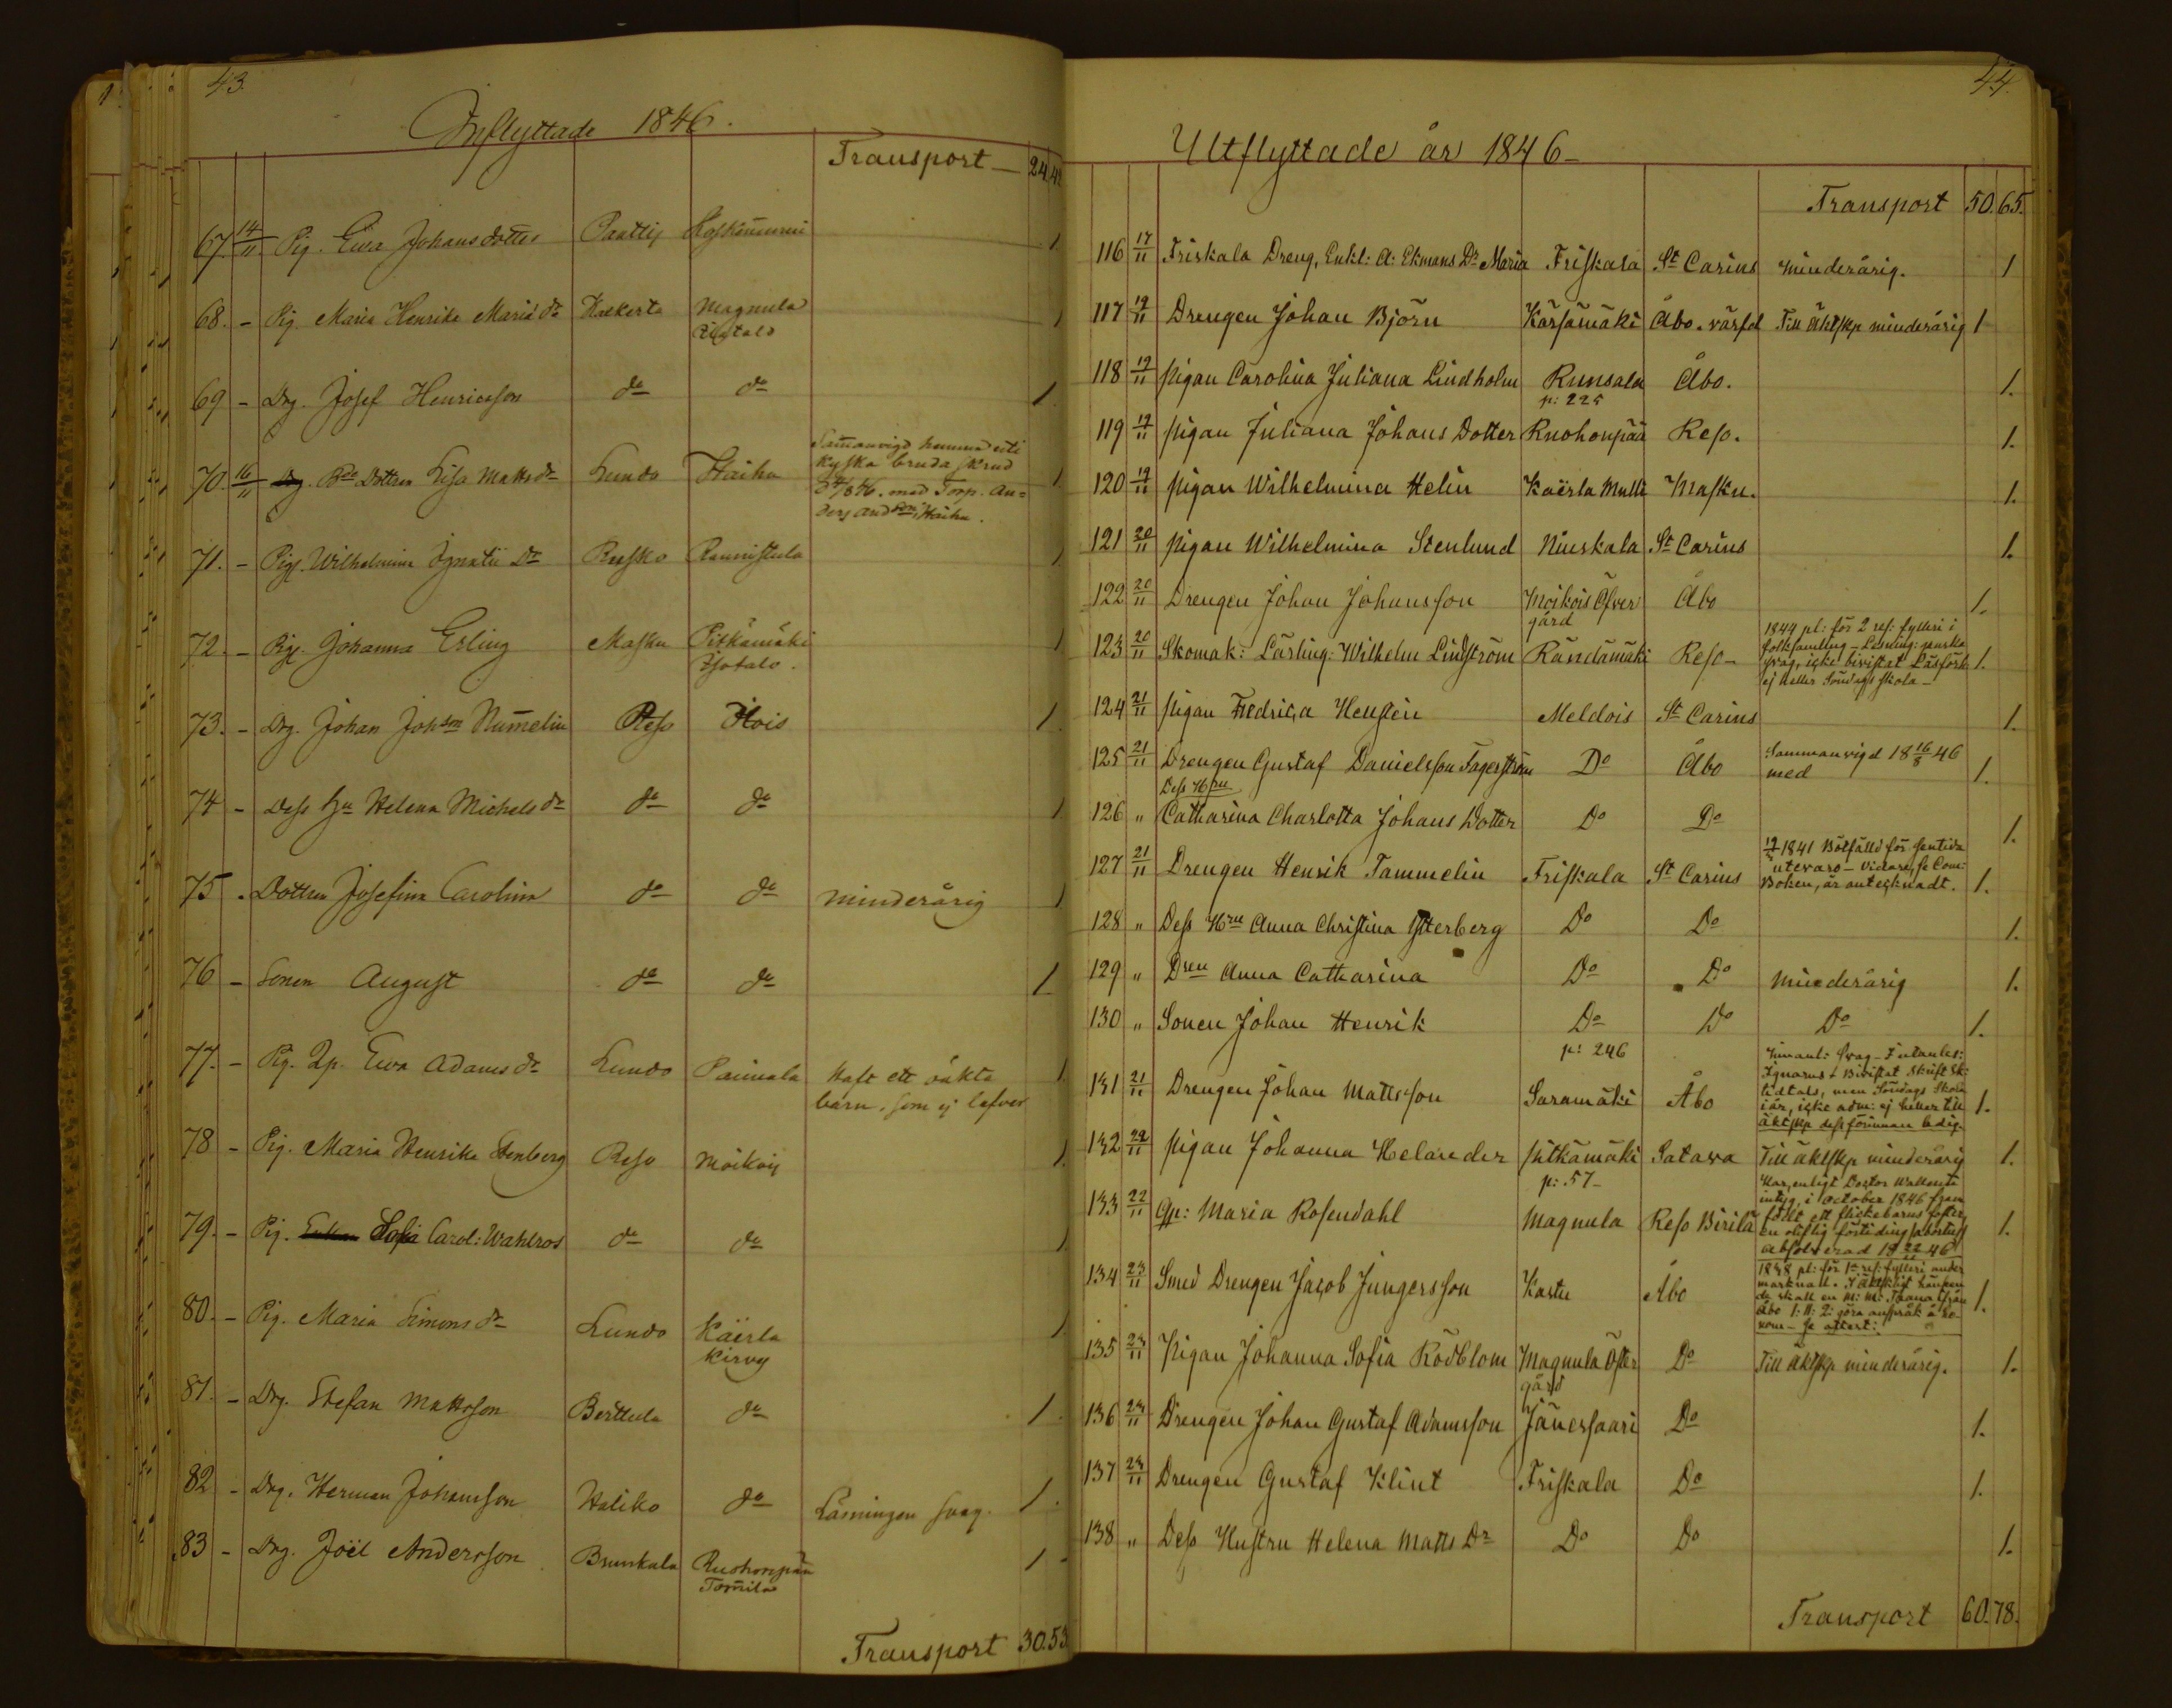 43
Inflyttade 1846.
Transport — 24 42
67. 14/11 Pig. Ewa Johansdotter Paattis 1
68. - Pig. Maria Henrika Mariæ dr Kakerta Magnula 1
Östgtalo
69 - Drg. Josef Henricsson do do 1
70. 16/11 Bde Dottren Lisa Matts dr Lundo Haihu Sam̄anvigd hemma uti 1
kyska bruda skrud
med Torp. An-
ders Andsson, Haihu.
71. - Pig. Wilhelmina Ignatii Dr Rusko Raunistula 1
72. - Pig. Johanna Erling Masku Pitkämäki 1
Isotalo.
73. - Drg. Johan Johsson Num̄elin Reso Ilois 1
74 - Dess Hu Helena Michels dr do do 1
75 - Dottren Josefina Carolina do do minderårig 1
76 - Sonen August do do 1
77. - Pig. Qp. Ewa Adams dr Lundo Paimala Haft ett oäkta 1
barn, som ej lefver
78 - Pig. Maria Henrika Stenberg Reso Moikois 1
79. - Pig. Sofia Carol: Wahlros do do 1
80. - Pig. Maria Simons dr Lundo Käirla 1
Kirvy
81. - Drg. Stefan Mattsson Berttula do 1
82 - Drg. Herman Johansson Haliko do Läsningen svag. 1
83 - Drg. Joël Andersson Brunkala Ruohonpää 1
Tom̄ila
Transport 30.53
44.
Utflyttade år 1846 –
Transport 50.65.
116 17/11 Friskala Dreng, Enkl: A: Ekmans Dr Maria Friskala St Carins minderårig. 1
117 19/11 Drengen Johan Björn Kärsämäki Åbo. Till Äktskp minderårig 1
118 19/11 Pigan Carolina Juliana Lindholm Runsala Åbo. 1.
p: 225
119 19/11 Pigan Juliana Johans Dotter Ruohonpää Reso. 1.
120 19/11 Pigan Wilhelmina Helin Kaërla Mulli Masku. 1.
121 20/11 Pigan Wilhelmina Stenlund Niuskala St Carins 1.
122 20/11 Drengen Johan Johansson Moikois Öfver Åbo 1.
gård
123 20/11 Skomak: Lärling: Wilhelm Lindström Rändämäki Reso – 1844 pl: för 2 res: fylleri i 1.
folksamling – Läsning: ganska
svag, icke bivistat Läsförh:
ej heller Söndags skola –
124 21/11 Pigan Fredrica Henstén Meldois St Carins 1.
125 21/11 Drengen Gustaf Danielsson Fagerström Do Åbo Sammanvigd 18 16/8 46 1.
med
Dess Hru
126 " Catharina Charlotta Johans Dotter Do Do 1.
127 21/11 Drengen Henrik Tammelin Friskala St Carins 1841 Bötfälld för sentida 1.
utevaro – vidare, se Com:
Boken, är antecknadt.
128 " Dess Hru Anna Christina Ytterberg Do Do 1.
129 " Dren Anna Catharina Do Do Minderårig 1.
130 " Sonen Johan Henrik Do Do Do 1.
p: 246
131 21/11 Drengen Johan Mattsson Saramäki Åbo Innanl: svag – Intanles: 1.
Ignarus – Bivistat Skrift Sk:
tidtals, men Söndags Skola
i år, icke adm: ej heller till
äktskp dess förinnan ledig.
132 22/11 Pigan Johanna Helander Pitkämäki Satava Till äktskp minderårig 1.
p: 57 –
133 22/11 Qp: Maria Rosendahl Magnula Reso Birila Har, enligt Doctor 1.
intyg, i October 1846 fram-
födt ett flickebarns foster,
en olyflig förtiding /abortus/
absolverad 18 22/11 46
134 23/11 Smed Drengen Jacob Jungersson Karstu Åbo 1838 pl: för 1a res: fylleri under 1.
marknad.
de skall en M: M: från
Åbo 1: 11: 2: göra anspråk å ho-
nom – se attest:
135 23/11 Pigan Johanna Sofia Rödblom Magnula Öfver Do Till äktskp minderårig. 1.
gård
136 23/11 Drengen Johan Gustaf Adamsson Jänessaari Do 1.
137 23/11 Drengen Gustaf Klint Friskala Do 1.
138 " Dess Hustru Helena Matts Dr Do Do 1.
Transport 60.78.